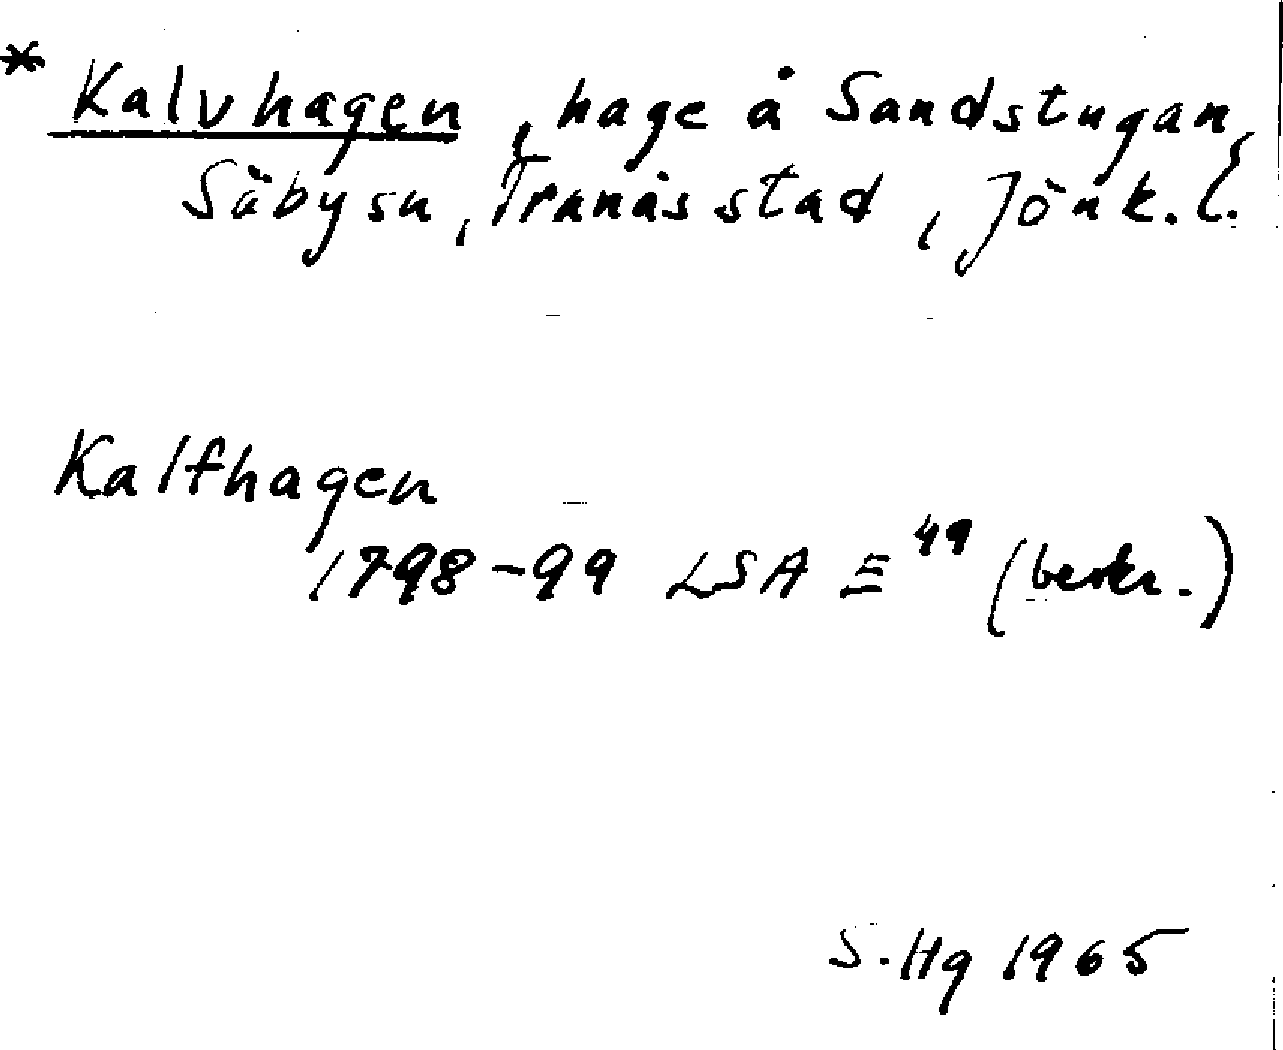 * Kalvhagen, hage å Sandstugan,
Säby sn, Tranås stad, Jönk. l.
Kalfhagen
1798-99 LSA E 49 (beskr.)
S. Hg 1965